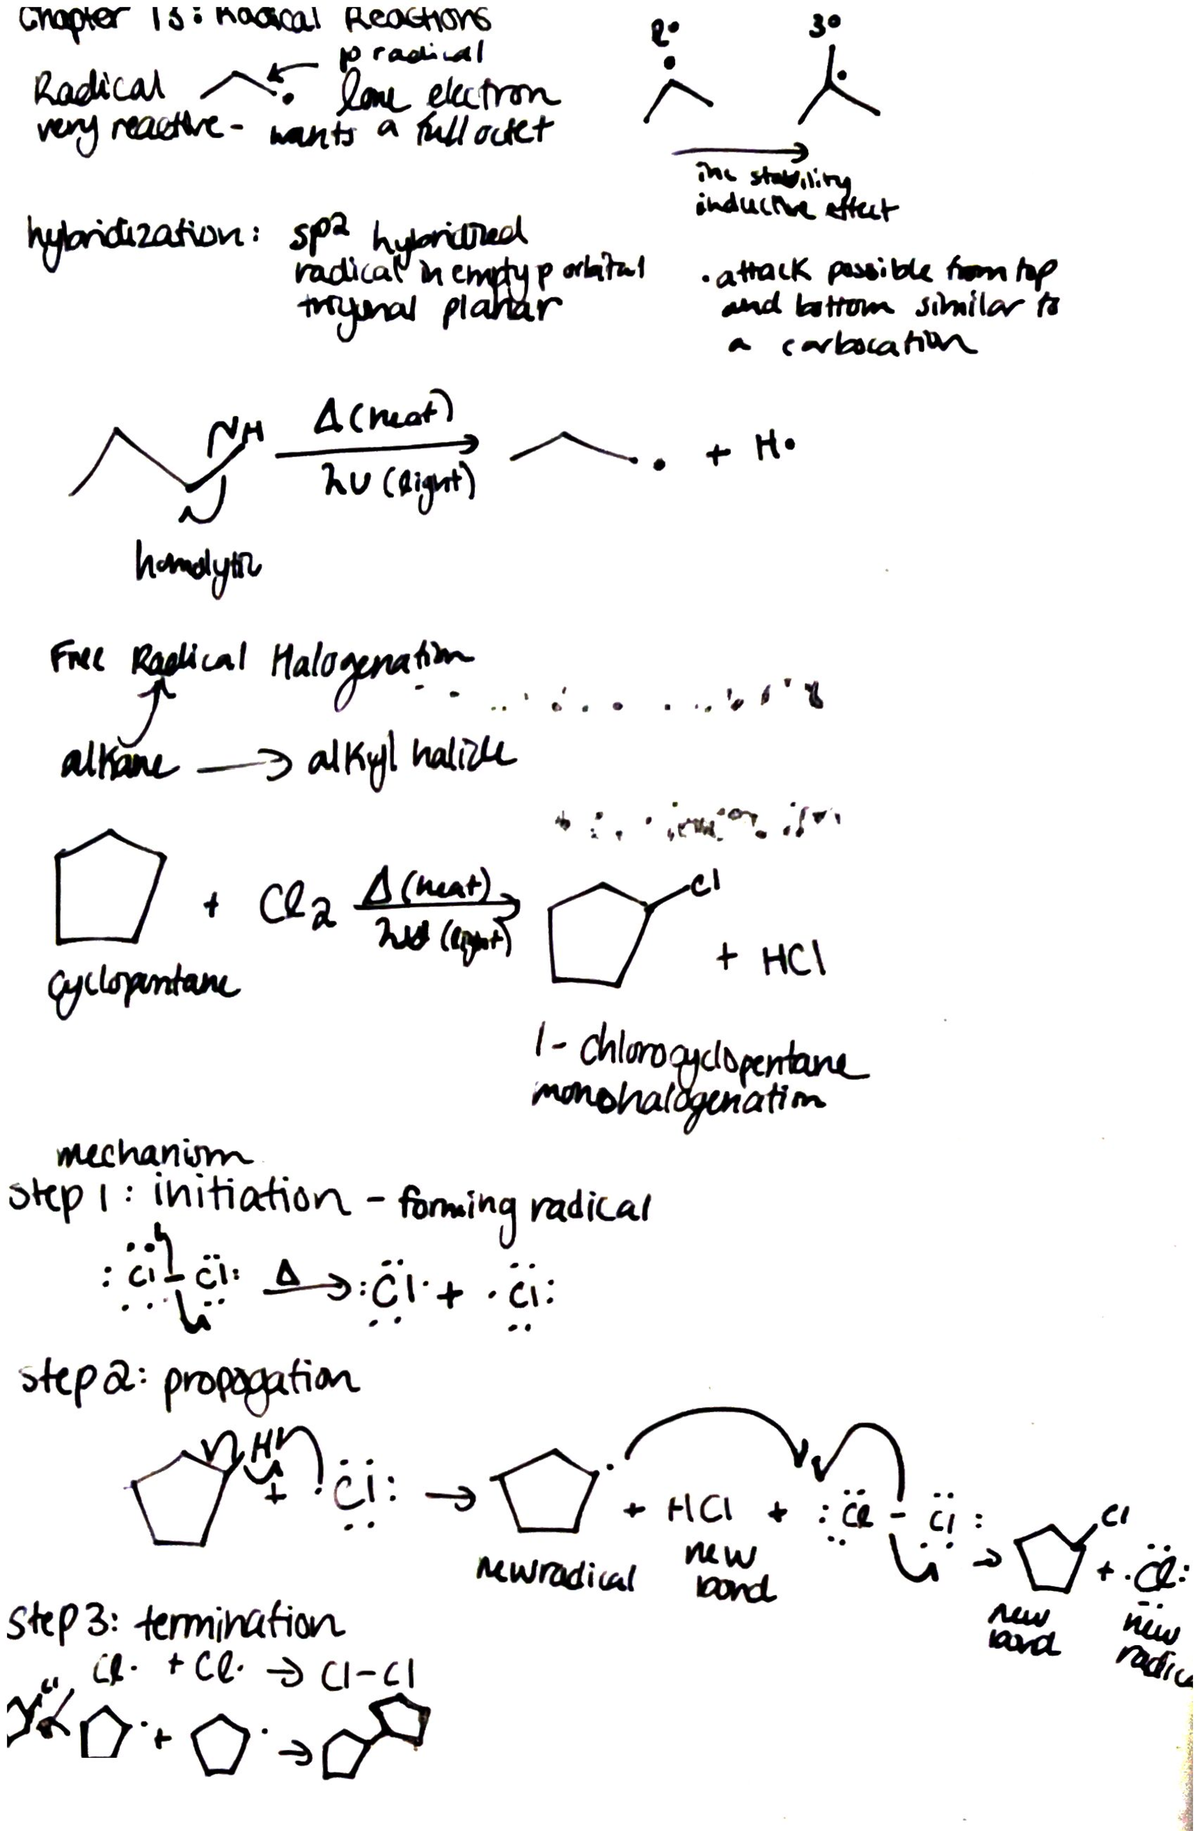 Chapter 15: Radical Reactions
p radical
2° 3°
Radical lone electron
very reactive - wants a full octet
inc stability
inductive effect
hybridization: sp2 hybridized
radical in empty p orbital
trigonal planar
· attack possible from top
and bottom similar to
a carbocation
H Δ (heat) + H•
hν (light)
homolytic
Free Radical Halogenation
alkane → alkyl halide
+ Cl2 Δ (heat) Cl
hν (light) + HCl
cyclopentane
1-chlorocyclopentane
monohalogenation
mechanism
Step 1: initiation - forming radical
:Cl-Cl: Δ → :Cl· + ·Cl:
Step 2: propogation
H + ·Cl: → + HCl + :Cl-Cl: → Cl + ·Cl:
new radical new bond new bond new radica
Step 3: termination
Cl· + Cl· → Cl-Cl
Cl
+ →